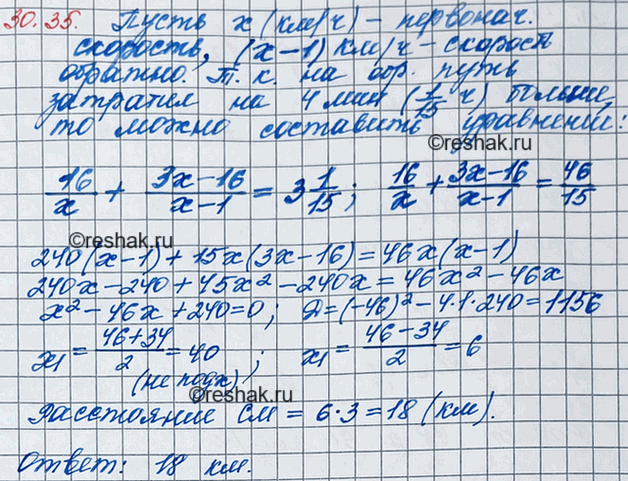 30.35. Пусть x (км/ч) - первонач.
скорость, (x-1) км/ч - скорость
обратно. Т. к. на обр. путь
затратил на 4 мин (1/15 ч) больше,
то можно составить уравнение:
©reshak.ru
16/x + (3x-16)/(x-1) = 3 1/15; 16/x + (3x-16)/(x-1) = 46/15
©reshak.ru
240(x-1) + 15x(3x-16) = 46x(x-1)
240x - 240 + 45x² - 240x = 46x² - 46x
x² - 46x + 240 = 0; D = (-46)² - 4·1·240 = 1156
x₁ = (46+34)/2 = 40; x₁ = (46-34)/2 = 6
(не подх)
©reshak.ru
Расстояние СМ = 6·3 = 18 (км).
Ответ: 18 км.